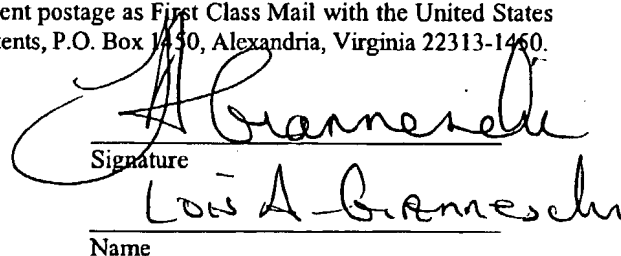 ent postage as First Class Mail with the United States
tents, P.O. Box 1450, Alexandria, Virginia 22313-1450.
A Gianneschi
Signature
Lois A. Gianneschi
Name